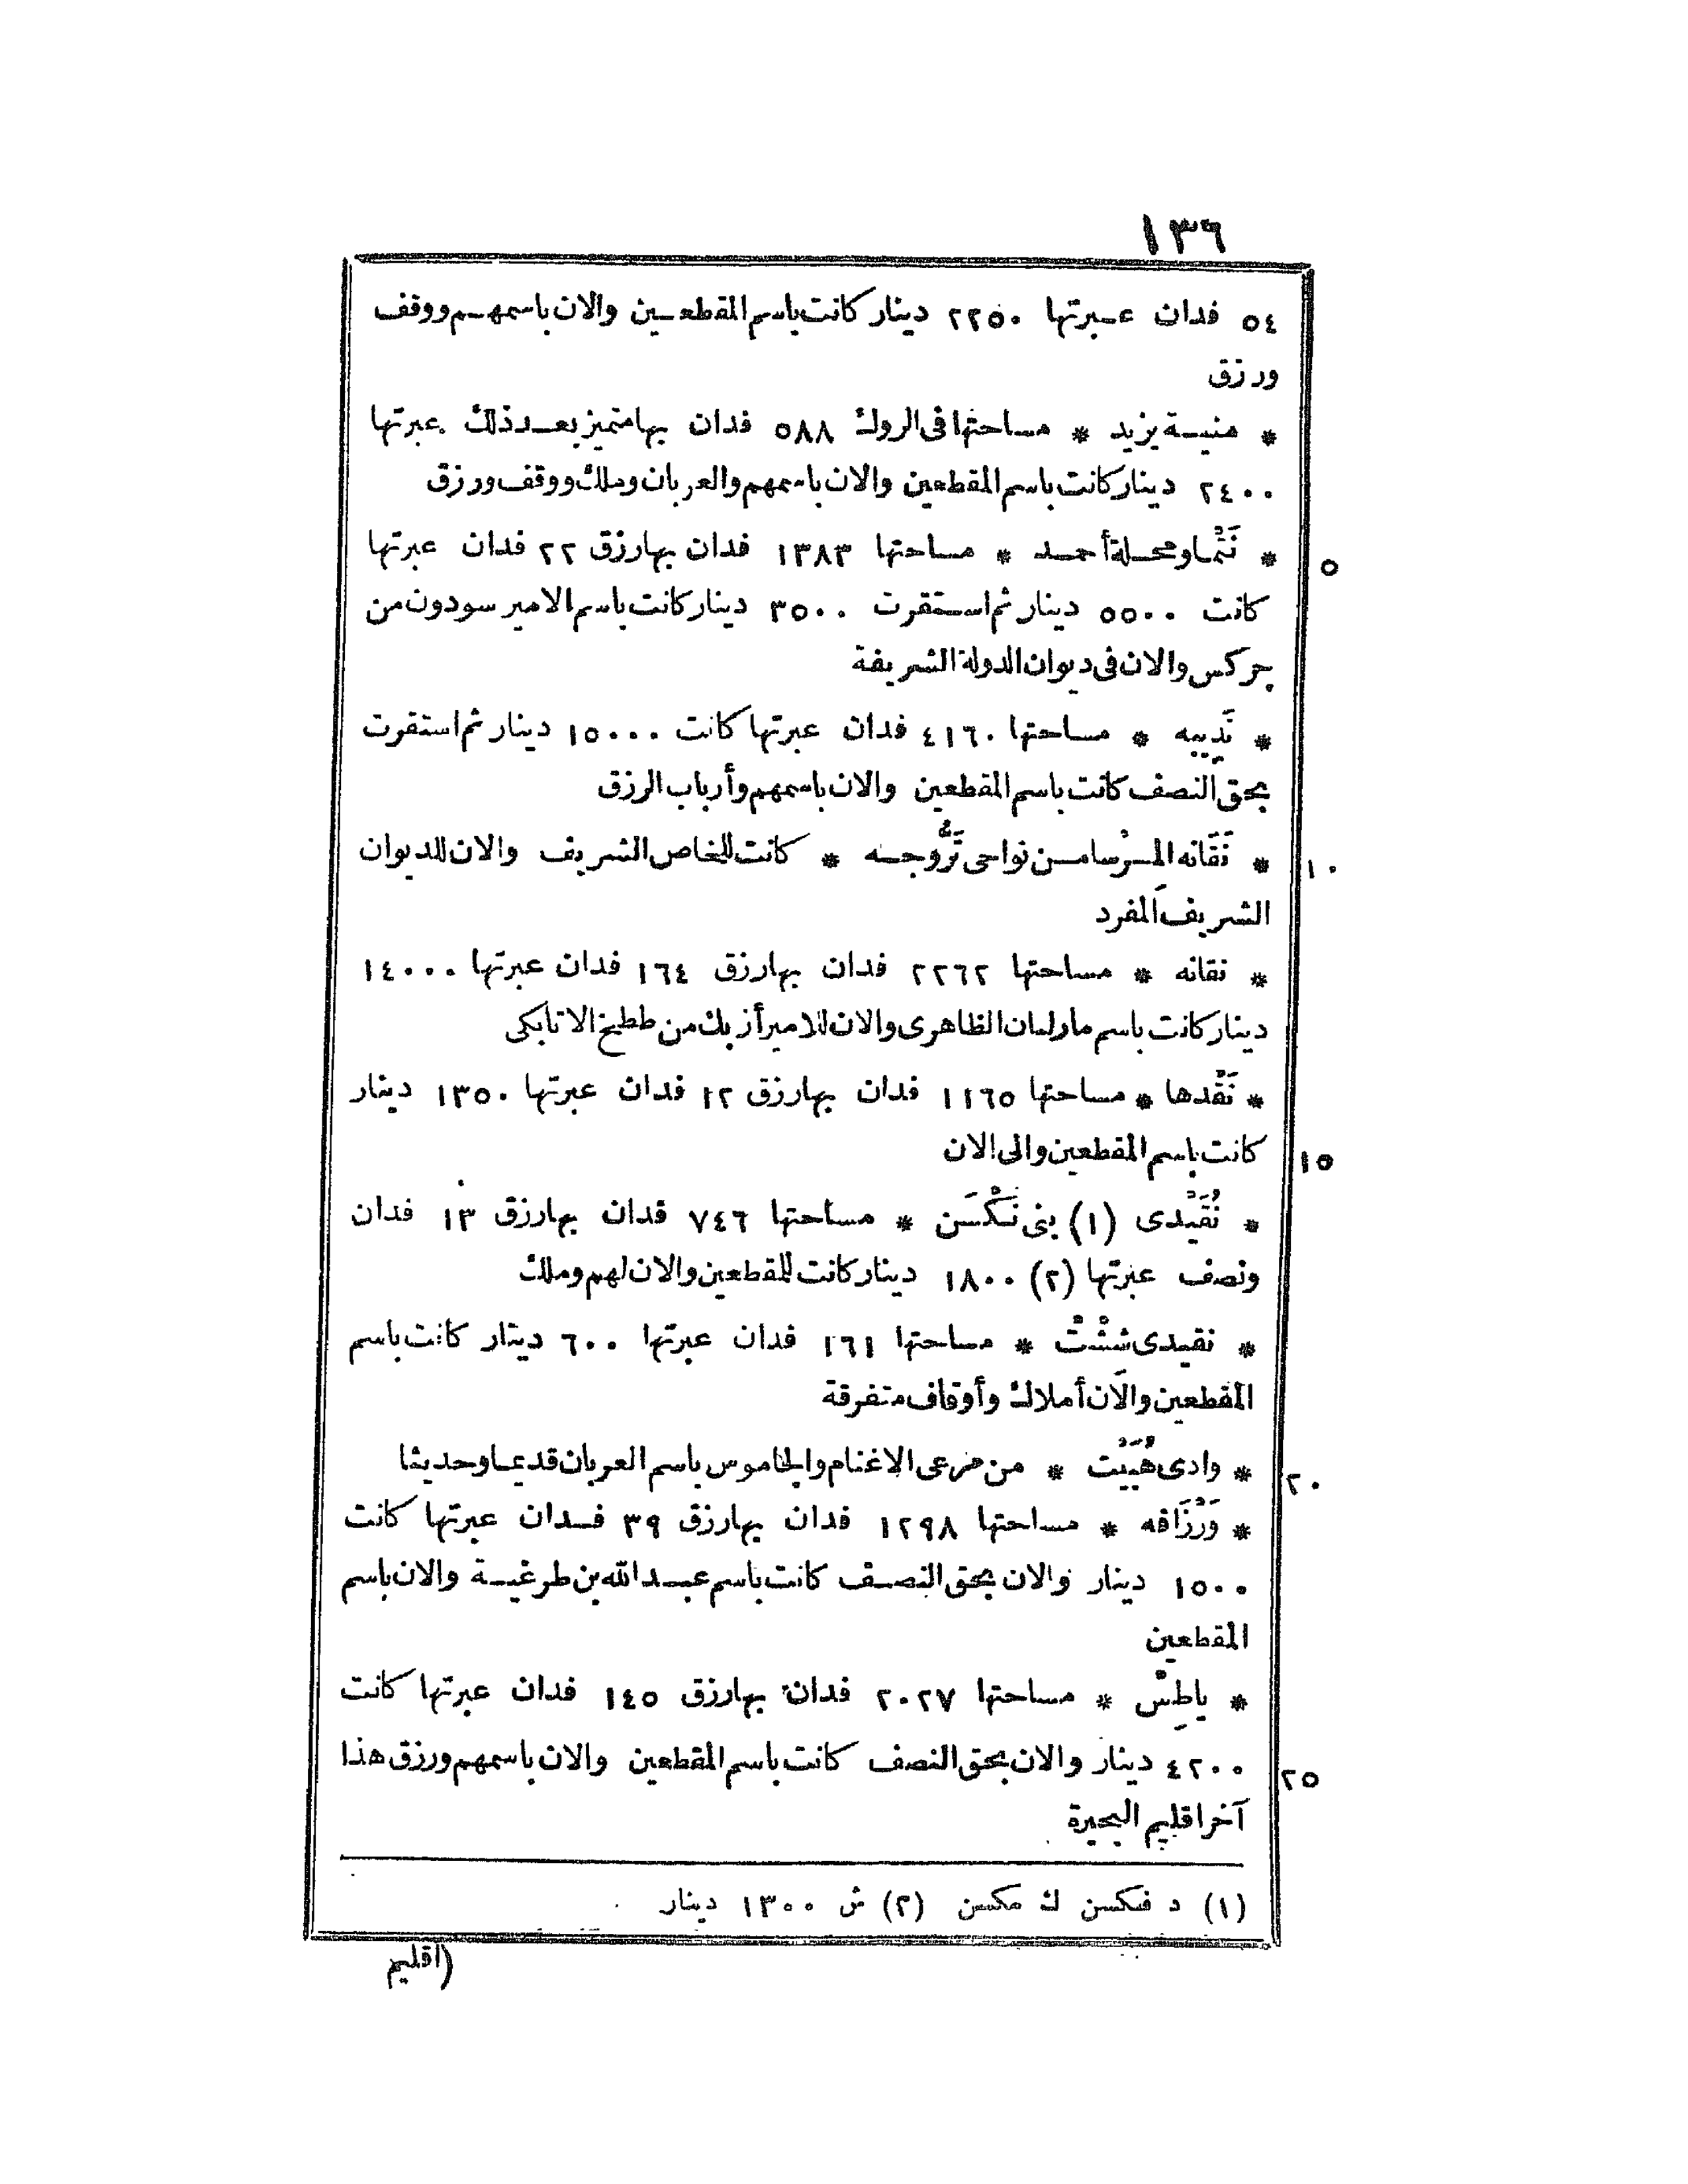 ١٣٦
٥٤ فدان عبرتها ٢٢٥٠ دينار كانت باسم المقطعين والان باسمهم ووقف
ورزق
* منية يزيد * مساحتها فى الروك ٥٨٨ فدان بها متميز بعد ذلك عبرتها
٢٤٠٠ دينار كانت باسم المقطعين والان باسمهم والعربان وملك ووقف ورزق
* نَتْما ومحلة أحمد * مساحتها ١٣٨٣ فدان بها رزق ٢٢ فدان عبرتها
٥
كانت ٥٥٠٠ دينار ثم استقرت ٣٥٠٠ دينار كانت باسم الامير سودون من
جركس والان فى ديوان الدولة الشريفة
* نَدِيبه * مساحتها ٤١٦٠ فدان عبرتها كانت ١٥٠٠٠ دينار ثم استقرت
بحق النصف كانت باسم المقطعين والان باسمهم وأرباب الرزق
* نَقَانه المرْسا من نواحى تَرُّوجه * كانت للخاص الشريف والان للديوان
١٠
الشريف المفرد
* نقانه * مساحتها ٢٢٦٢ فدان بها رزق ١٦٤ فدان عبرتها ١٤٠٠٠
دينار كانت باسم الظاهرى والان للامير أزبك من ططخ الاتابكى
* نَقْدها * مساحتها ١١٦٥ فدان بها رزق ١٢ فدان عبرتها ١٣٥٠ دينار
كانت باسم المقطعين والى الان
١٥
* نُقَيْدى (١) بنى نَكْسَن * مساحتها ٧٤٦ فدان بها رزق ١٣ فدان
ونصف عبرتها (٢) ١٨٠٠ دينار كانت للمقطعين والان لهم وملك
* نقيدى شْشْتْ * مساحتها ١٦١ فدان عبرتها ٦٠٠ دينار كانت باسم
المقطعين والآن أملاك وأوقاف متفرقة
* وادى هُبَيْت * من مرعى الاغنام والجاموس باسم العربان قديما وحديثا
٢٠
* وَرْزَافه * مساحتها ١٢٩٨ فدان بها رزق ٣٩ فدان عبرتها كانت
١٥٠٠ دينار والان بحق النصف كانت باسم عبد الله بن طرغية والان باسم
المقطعين
* ياطِسْ * مساحتها ٢٠٢٧ فدان بها رزق ١٤٥ فدان عبرتها كانت
٤٢٠٠ دينار والان بحق النصف كانت باسم المقطعين والان باسمهم ورزق هذا
٢٥
آخر اقليم البحيرة
(١) د فنكسن ك مكسن (٢) ش ١٣٠٠ دينار
(اقليم